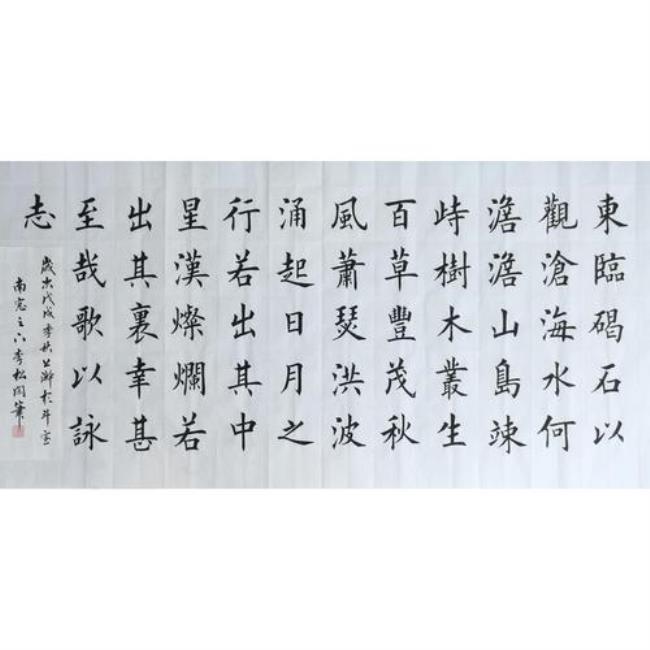 東臨碣石以
觀滄海水何
澹澹山島竦
峙樹木叢生
百草豐茂秋
風蕭瑟洪波
涌起日月之
行若出其中
星漢燦爛若
出其裏幸甚
至哉歌以詠
志
歲次戊戌季秋於斗室
南窓主人李松閣筆